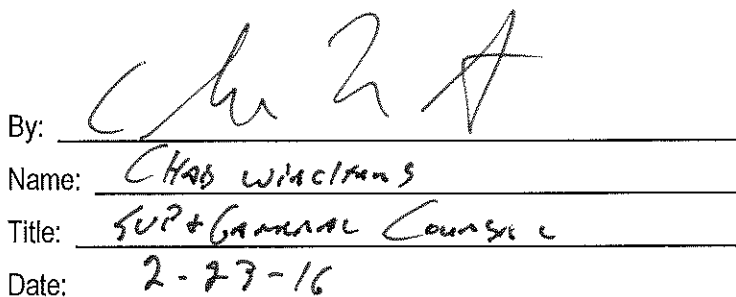 By:
Name: CHAD WILLIAMS
Title: SVP + GENERAL COUNSEL
Date: 2-23-16